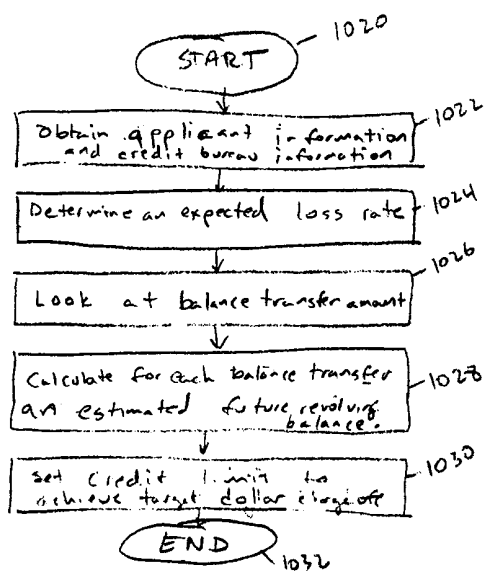 1020
START
1022
Obtain applicant information
and credit bureau information
1024
Determine an expected loss rate
1026
Look at balance transfer amount
1028
Calculate for each balance transfer
an estimated future revolving
balance.
1030
Set credit limit to
achieve target dollar chargeoff
END
1032